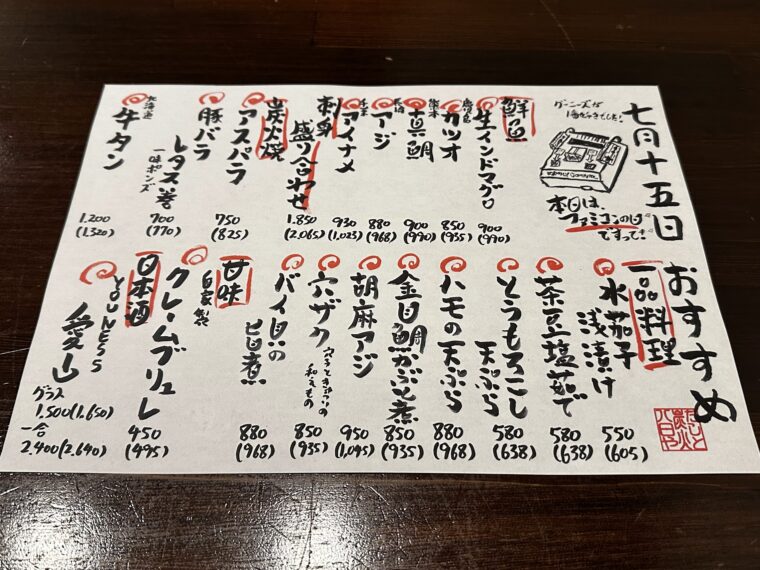 七月十五日
おすすめ
本日は、
ファミコンの日
ですって!
鮮魚
生インドマグロ
900
(990)
カツオ
850
(935)
真鯛
900
(990)
アジ
880
(968)
アイナメ
930
(1,023)
刺身
盛り合わせ
1.850
(2,065)
炭火焼
アスパラ
750
(825)
豚バラ
レタス巻
一味ポンズ
700
(770)
北海道
牛タン
1.200
(1.320)
一品料理
水茄子
浅漬け
550
(605)
茶豆塩茹で
580
(638)
とうもろこし
天ぷら
580
(638)
ハモの天ぷら
880
(968)
金目鯛かぶと煮
850
(935)
胡麻アジ
950
(1,045)
穴ザク
穴子ときゅうりの
和えもの
850
(935)
バイ貝の
旨煮
880
(968)
甘味
自家製
クレームブリュレ
450
(495)
日本酒
愛山
グラス
1.500(1.650)
一合
2.400(2.640)